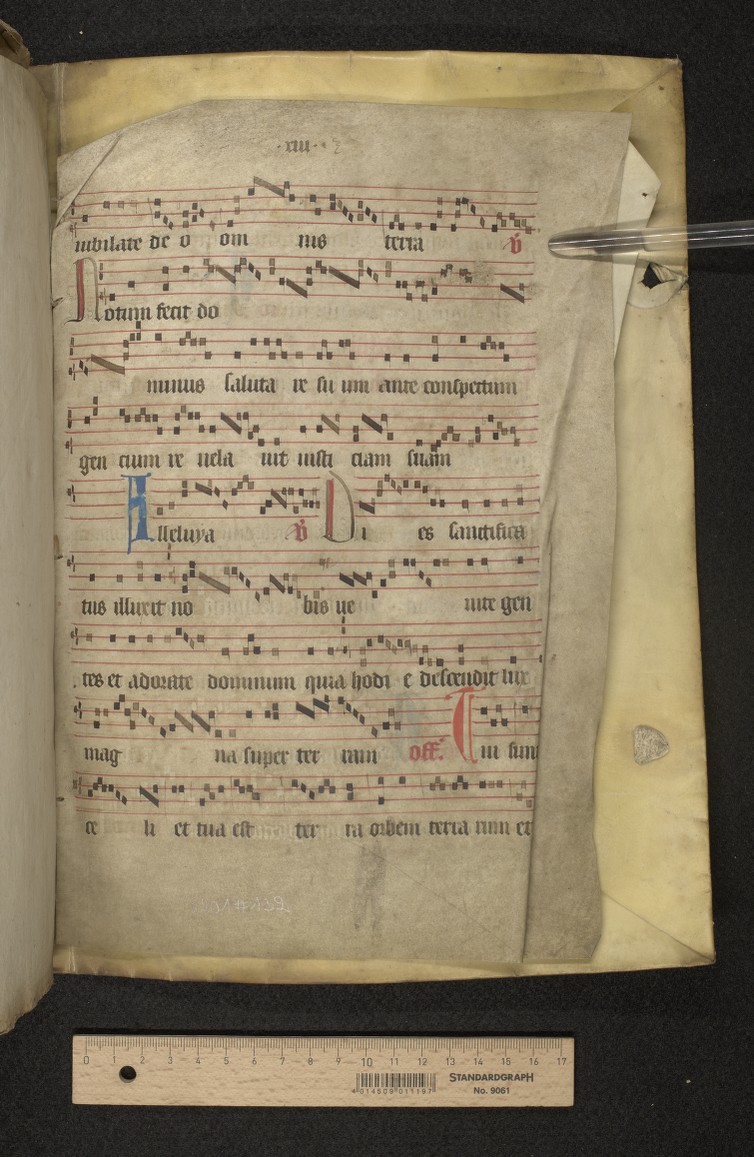 ·xiii·
iubilate de o om nis terra v̄
Notum fecit do
minus saluta re su um ante conspectum
gen cium re uela uit iusti ciam suam
Alleluya v̄ Di es sanctifica
tus illuxit no bis ue nite gen
tes et adorate dominum quia hodi e descendit lux
mag na super ter ram off. Tui sunt
ce li et tua est ter ra orbem terra rum et
0 1 2 3 4 5 6 7 8 9 10 11 12 13 14 15 16 17
4 014509 011197
STANDARDGRAPH
No. 9061